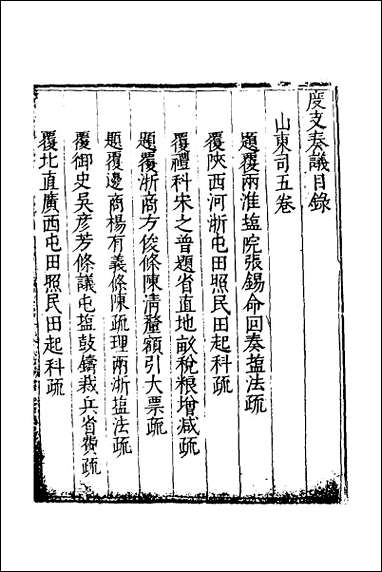 度支奏議目錄
山東司五卷
題覆兩淮塩院張錫命回奏塩法疏
覆陝西河浙屯田照民田起科疏
覆禮科宋之普題省直地畝稅粮增减疏
題覆浙商方俊條陳清釐額引大票疏
題覆邊商楊有義條陳疏理兩浙塩法疏
覆御史吴彦芳條議屯塩鼓鑄裁兵省費疏
覆北直廣西屯田照民田起科疏